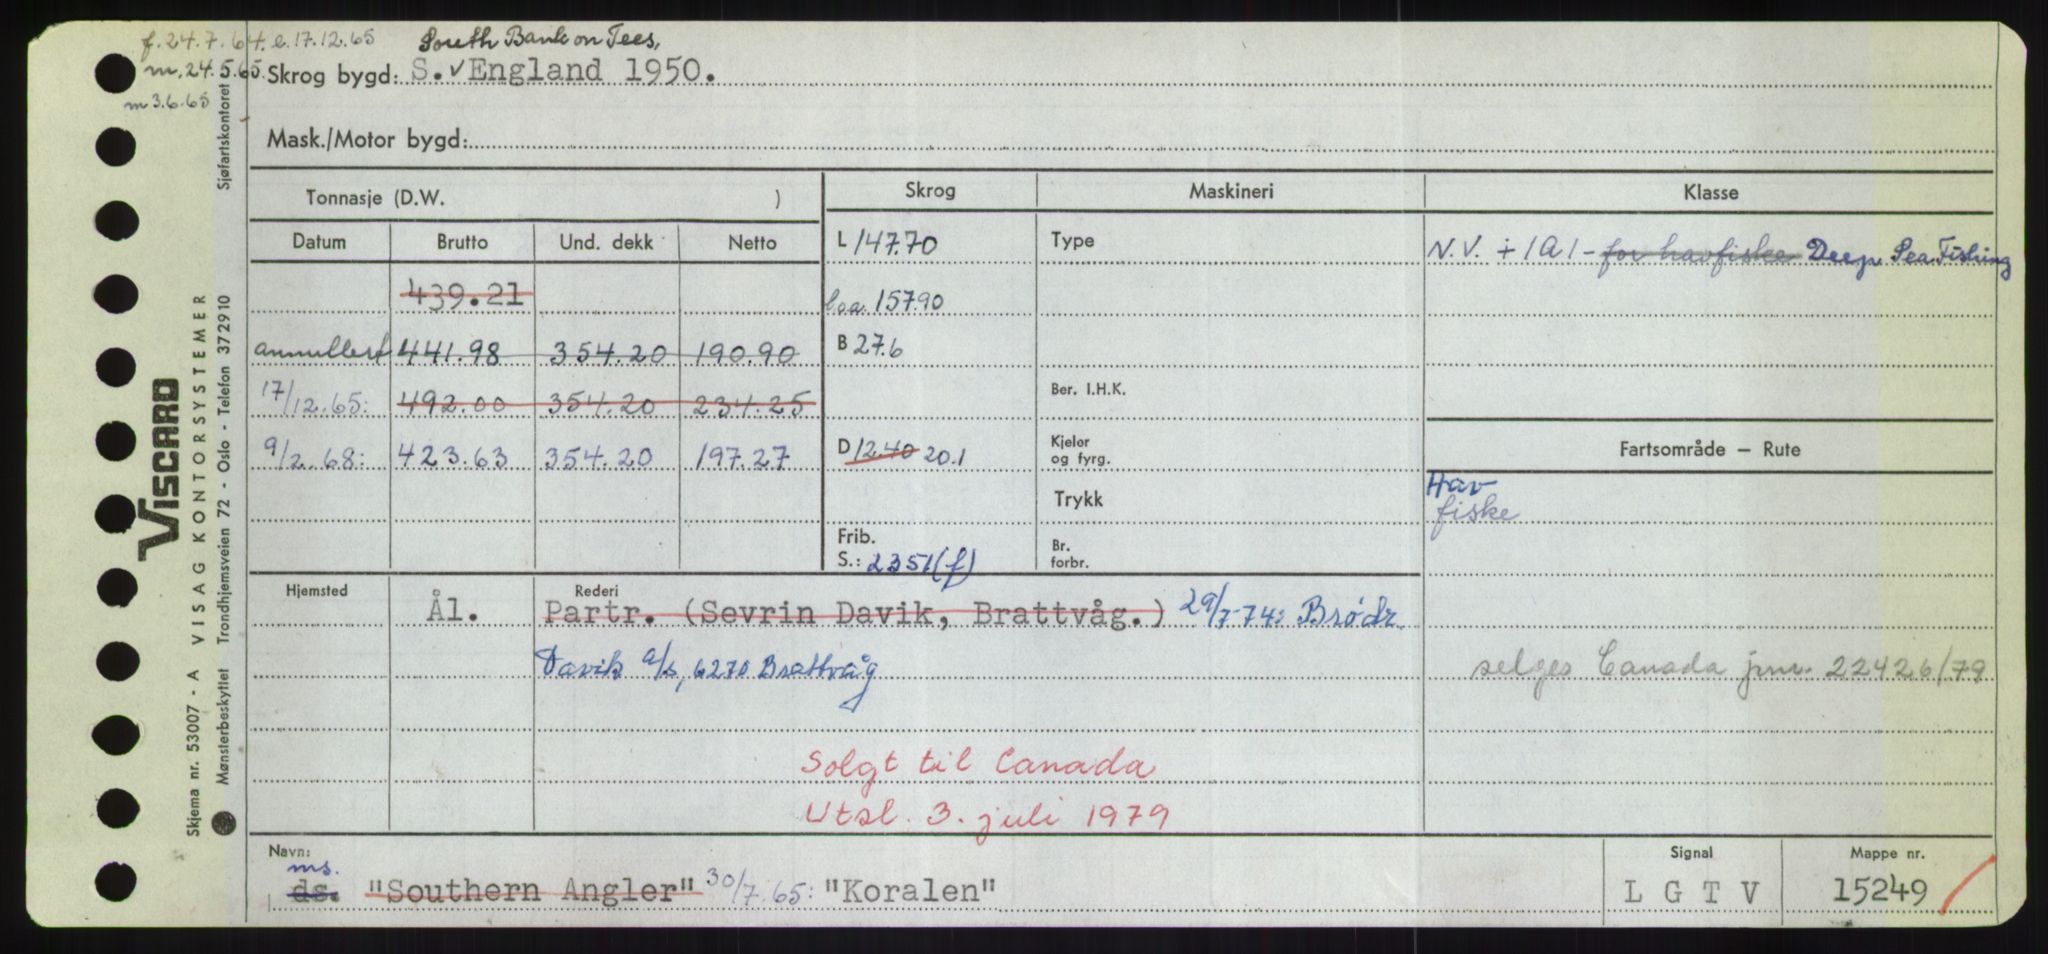 f. 24.7.64. e. 17.12.65
m. 24.5.65.
m 3.6.65
South Bank on Tees,
Skrog bygd: S. v England 1950.
Mask./Motor bygd:
Tonnasje (D.W. )
Skrog
Maskineri
Klasse
Datum Brutto Und. dekk Netto
L 147.70
Type
N.V. + 1A1 - for havfiske Deep Sea Fishing
439.21
loa. 157.90
annullert 441.98 354.20 190.90
B 27.6
17/12.65: 492.00 354.20 234.25
Ber. I.H.K.
9/2.68: 423.63 354.20 197.27
D 12.40 20.1
Kjeler
og fyrg.
Fartsområde – Rute
Trykk
Hav
fiske
Frib.
S.: 2351(f)
Br.
forbr.
Hjemsted
Ål.
Rederi
Partr. (Sevrin Davik, Brattvåg.) 29/7-74: Brødr.
Davik a/s, 6270 Brattvåg
selges Canada jnr. 22426/79
Solgt til Canada
Utsl. 3. juli 1979
Navn:
ms.
ds. "Southern Angler" 30/7.65: "Koralen"
Signal
L G T V
Mappe nr.
15249
VISCARD
Skjema nr. 53007 - A VISAG KONTORSYSTEMER
Mønsterbeskyttet Trondhjemsveien 72 - Oslo - Telefon 372910
Sjøfartskontoret